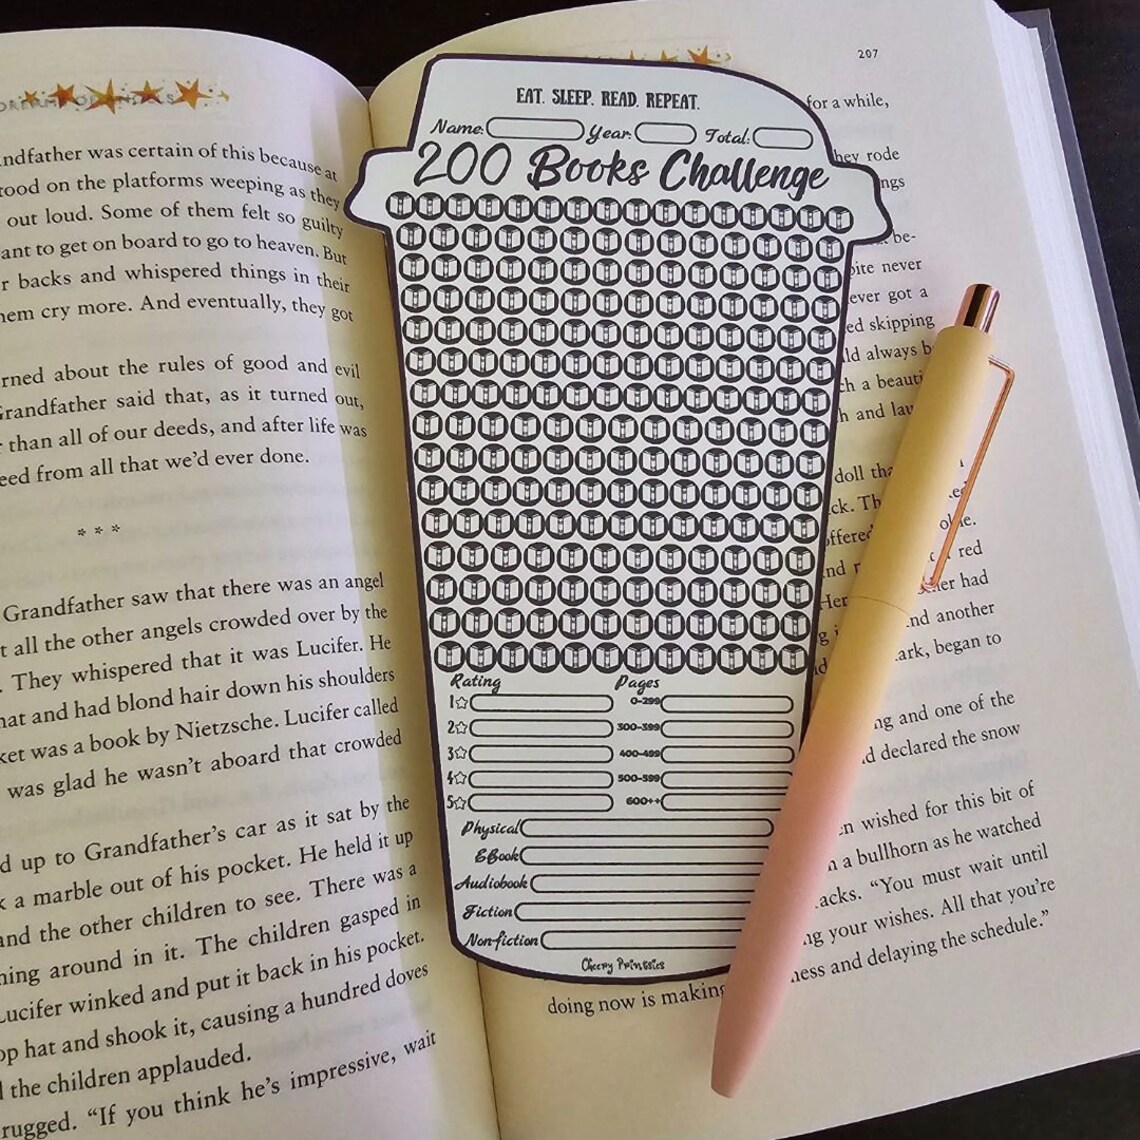 ndfather was certain of this because at
ood on the platforms weeping as they
out loud. Some of them felt so guilty
ant to get on board to go to heaven. But
r backs and whispered things in their
em cry more. And eventually, they got
rned about the rules of good and evil
Grandfather said that, as it turned out,
than all of our deeds, and after life was
eed from all that we'd ever done.
* * *
Grandfather saw that there was an angel
t all the other angels crowded over by the
. They whispered that it was Lucifer. He
hat and had blond hair down his shoulders
ket was a book by Nietzsche. Lucifer called
was glad he wasn't aboard that crowded
d up to Grandfather's car as it sat by the
k a marble out of his pocket. He held it up
and the other children to see. There was a
ning around in it. The children gasped in
Lucifer winked and put it back in his pocket.
op hat and shook it, causing a hundred doves
l the children applauded.
rugged. "If you think he's impressive, wait
EAT. SLEEP. READ. REPEAT.
Name: Year: Total:
200 Books Challenge
Rating Pages
1☆ 0-299
2☆ 300-399
3☆ 400-499
4☆ 500-599
5☆ 600++
Physical
EBook
Audiobook
Fiction
Non-fiction
Cheery Printsies
207
for a while,
hey rode
ngs
be-
ite never
ever got a
ed skipping
ld always b
ch a beauti
h and lau
doll tha
ck. Th
offered
nd r red
Her her had
g nd another
ark, began to
ng and one of the
d declared the snow
en wished for this bit of
n a bullhorn as he watched
acks. "You must wait until
ng your wishes. All that you're
ness and delaying the schedule."
doing now is making